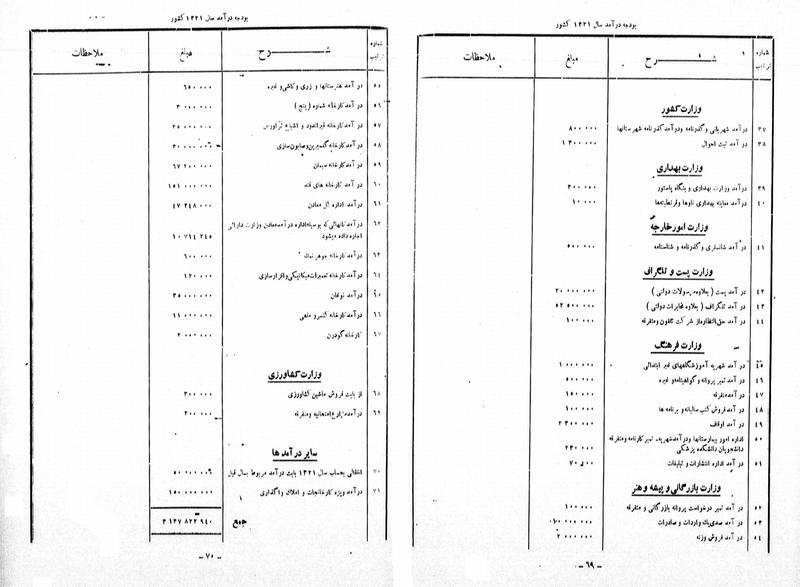 بودجه درآمد سال ۱۳۲۱ کشور
شماره ترتیب شرح مبلغ ملاحظات
وزارت کشور
۳۷ درآمد شهربانی و گذرنامه ودرآمد گذرنامه شهرستانها ۸۰۰ ۰۰۰
۳۸ درآمد ثبت احوال ۱ ۳۰۰ ۰۰۰
وزارت بهداری
۳۹ درآمد وزارت بهداری و بنگاه پاستور ۳۰۰ ۰۰۰
۴۰ درآمد معاینه بهداری ناوها وقرنطینه‌ها ۱۰ ۰۰۰
وزارت امورخارجه
۴۱ درآمد کنسولی وگذرنامه و شناسنامه ۵۰۰ ۰۰۰
وزارت پست و تلگراف
۴۲ درآمد پست ( بعلاوه مرسولات دولتی ) ۲۰ ۰۰۰ ۰۰۰
۴۳ درآمد تلگراف ( بعلاوه مخابرات دولتی ) ۵۲ ۵۰۰ ۰۰۰
۴۴ درآمد حق‌النظاره از شرکت تلفون ومتفرقه ۱۰۰ ۰۰۰
وزارت فرهنگ
۴۵ درآمد شهریه آموزشگاههای غیر ابتدائی ۱ ۰۰۰ ۰۰۰
۴۶ درآمد تمبر پروانه وگواهینامه وغیره ۵۰۰ ۰۰۰
۴۷ درآمد متفرقه ۱۵۰ ۰۰۰
۴۸ درآمد فروش کتب سالیانه و برنامه ها ۱۰۰ ۰۰۰
۴۹ درآمد اوقاف ۲ ۳۰۰ ۰۰۰
۵۰ اداره امور بیمارستانها ودرآمد شهریه، تمبر کارنامه ومتفرقه
دانشجویان دانشکده پزشکی ۲۳۰ ۰۰۰
۵۱ درآمد اداره انتشارات و تبلیغات ۷۰ ۰۰۰
وزارت بازرگانی و پیشه و هنر
۵۲ درآمد تمبر درخواست پروانه بازرگانی و متفرقه ۱۰۰ ۰۰۰
۵۳ درآمد صدی‌یک واردات و صادرات ۰۰۰ ۰۰۰
۵۴ درآمد فروش وزنه ۲ ۰۰۰ ۰۰۰
- ۶۹ -
بودجه درآمد سال ۱۳۲۱ کشور
شماره ترتیب شرح مبلغ ملاحظات
۵۵ درآمد هنرستانها و زری وکاشی و غیره ۶۵۰ ۰۰۰
۵۶ درآمد کارخانه شماره ( پنج ) ۳ ۰۰۰ ۰۰۰
۵۷ درآمد کارخانه قیراندود و اشباع تراورس ۲۵ ۰۰۰ ۰۰۰
۵۸ درآمد کارخانه گلیسرین و صابون‌سازی ۳۰ ۰۰۰ ۰۰۰
۵۹ درآمد کارخانه سیمان ۶۷ ۲۰۰ ۰۰۰
۶۰ درآمد کارخانه های قند ۱۵۱ ۰۰۰ ۰۰۰
۶۱ درآمد اداره کل معادن ۴۷ ۲۴۸ ۰۰۰
۶۲ درآمد کانهائی که بوسیله اداره درآمد معادن وزارت دارائی
اجاره داده میشود ۱۰ ۷۱۴ ۲۴۵
۶۳ درآمد کارخانه جوهر نمک ۶۰۰ ۰۰۰
۶۴ درآمد کارخانه تعمیرات میکانیکی و ابزارسازی ۱۲۰ ۰۰۰
۶۵ درآمد نوغان ۳۵ ۰۰۰ ۰۰۰
۶۶ درآمد کارخانه کنسرو ماهی ۱۱ ۰۰۰ ۰۰۰
۶۷ کارخانه گودرن ۲ ۰۰۰ ۰۰۰
وزارت کشاورزی
۶۸ از بابت فروش ماشین کشاورزی ۳۰۰ ۰۰۰
۶۹ درآمد مزارع امتحانیه ومتفرقه ۲۰۰ ۰۰۰
سایر درآمد ها
۷۰ انتقالی بحساب سال ۱۳۲۱ بابت درآمد مربوط بسال قبل ۵۰ ۰۰۰ ۰۰۰
۷۱ درآمد ویژه کارخانجات و املاک واگذاری ۱۵۰ ۰۰۰ ۰۰۰
جمع ۳ ۱۳۷ ۸۲۲ ۹۴۰
- ۷۰ -